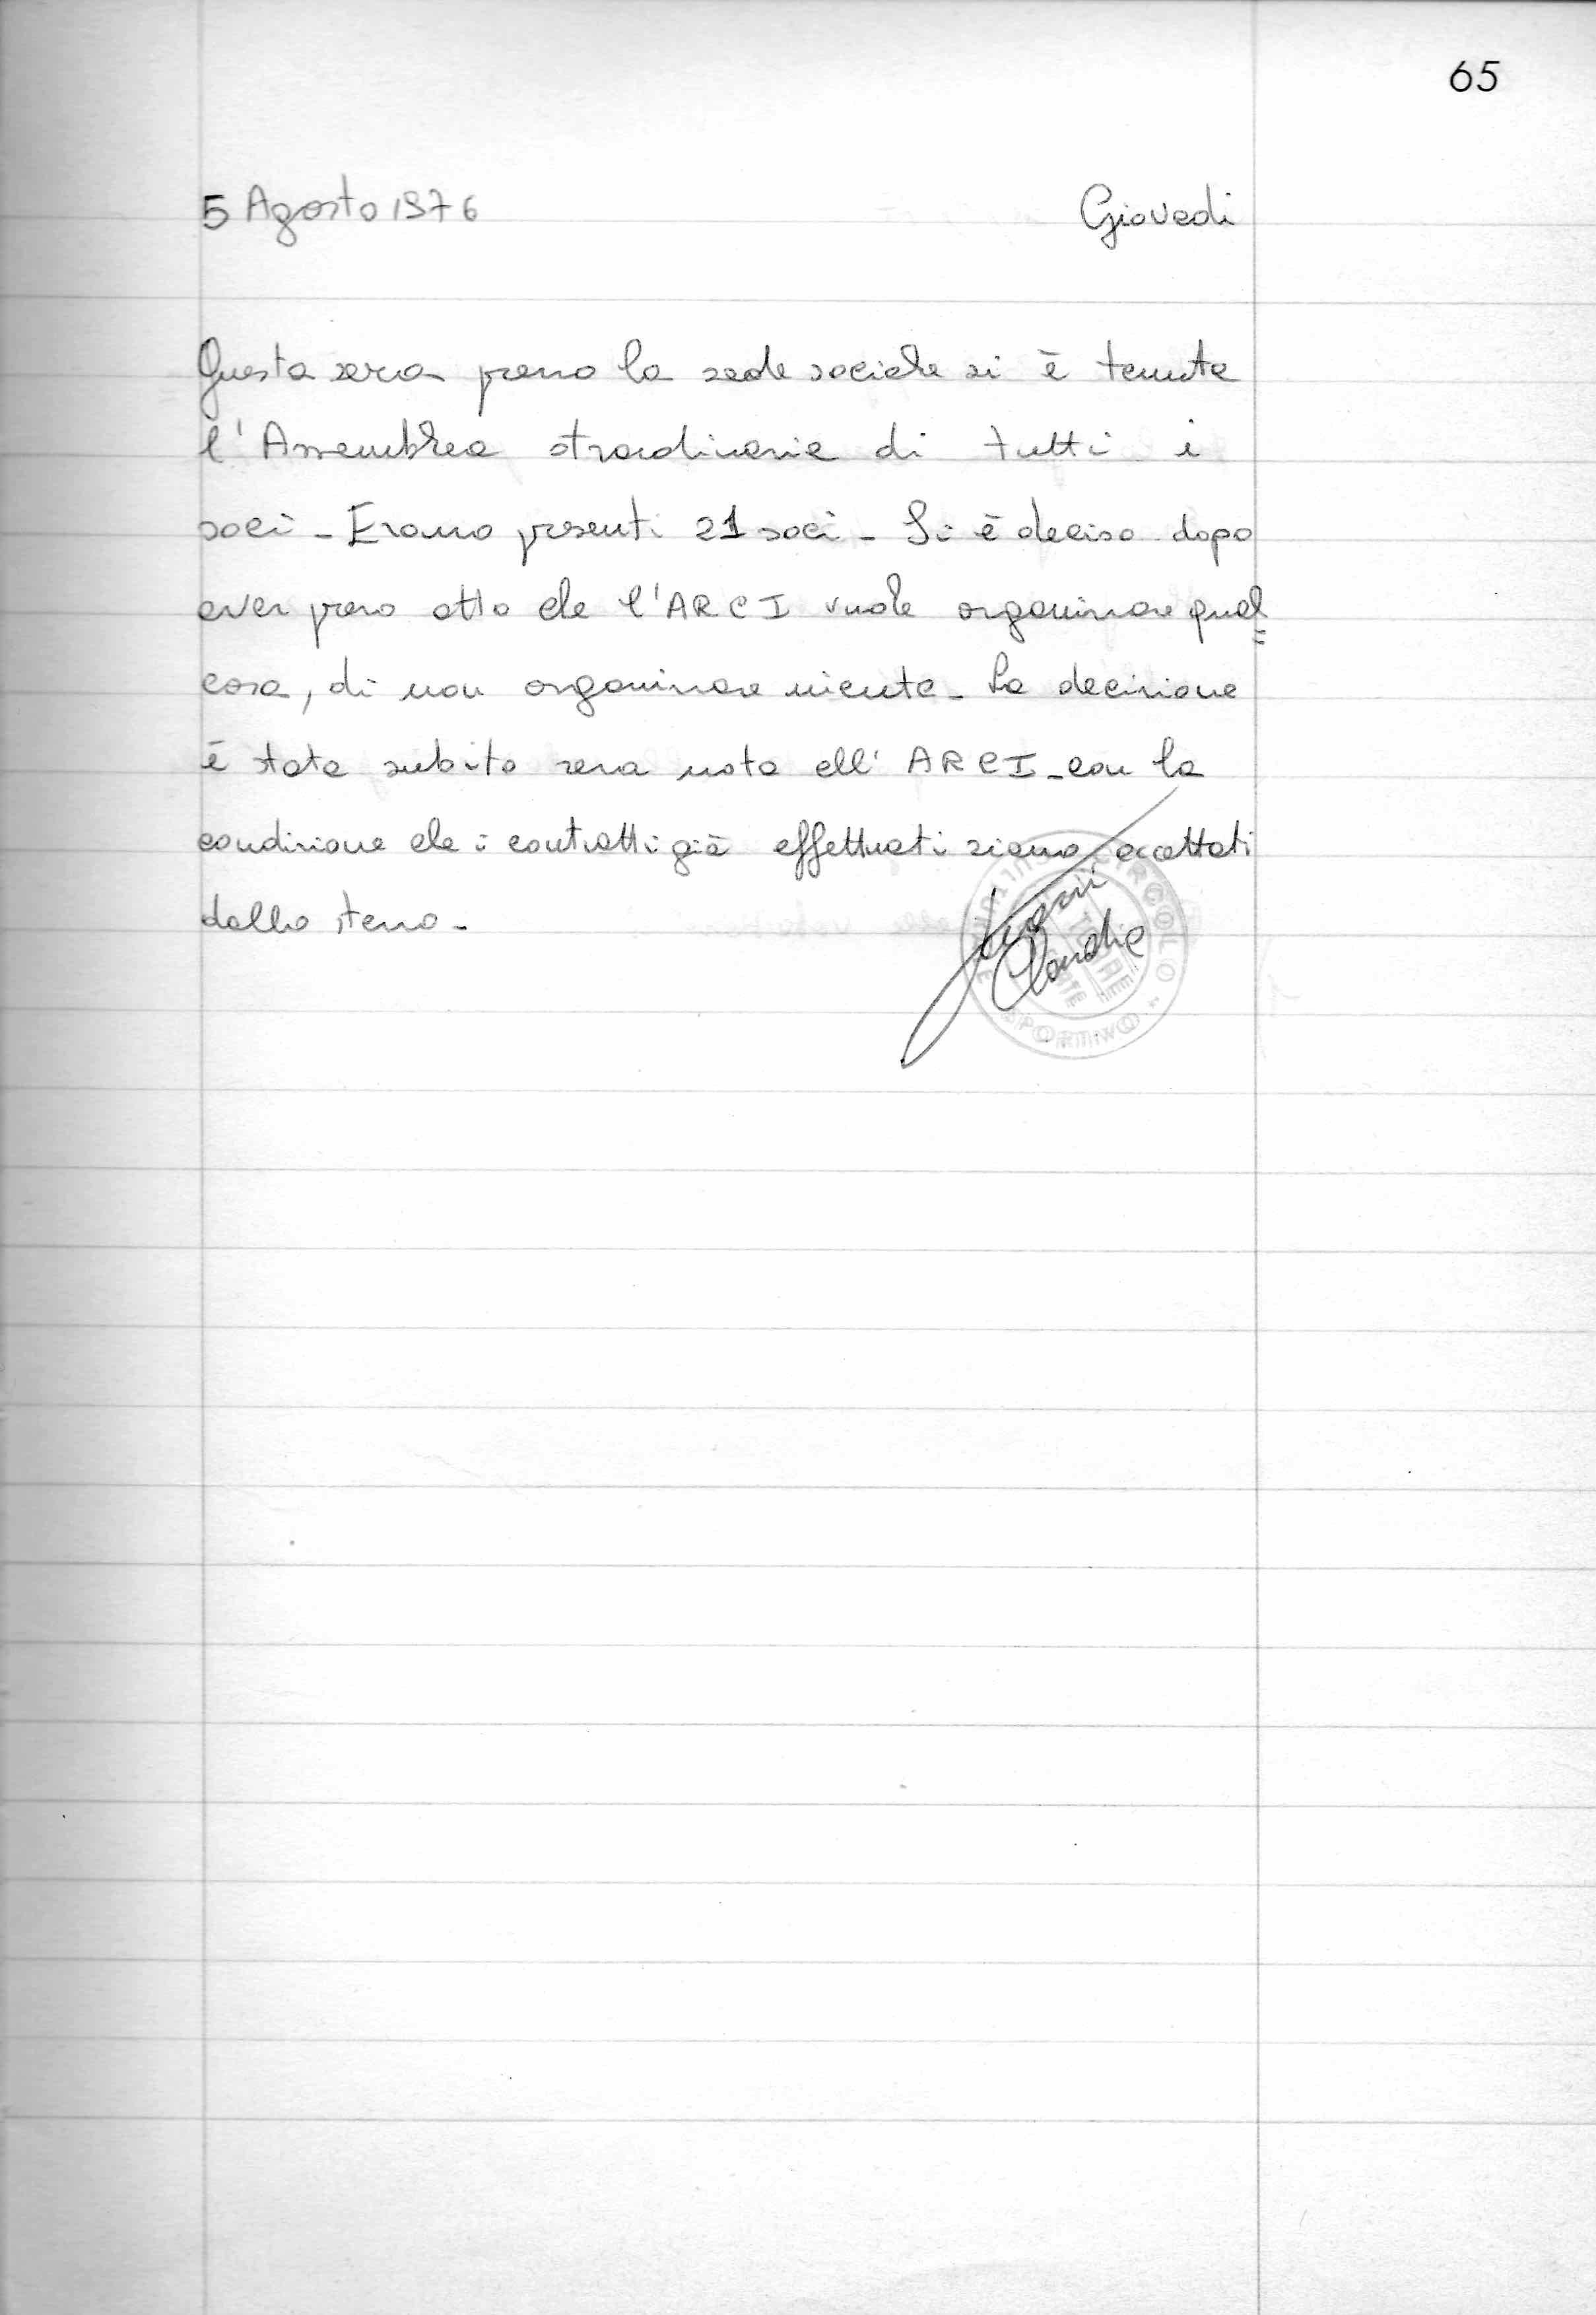 65
5 Agosto 1976 Giovedi
Questa sera presso la sede sociale si è tenuta
l'Assemblea straordinaria di tutti i
soci - Erano presenti 21 soci - Si è deciso dopo
aver preso atto che l'ARCI vuole organizzare qual=
cosa, di non organizzare niente - La decisione
è stata subito resa nota all'ARCI - con la
condizione che i contratti già effettuati siano accettati
dallo stesso -
Claudio
CIRCOLO
SPORTIVO